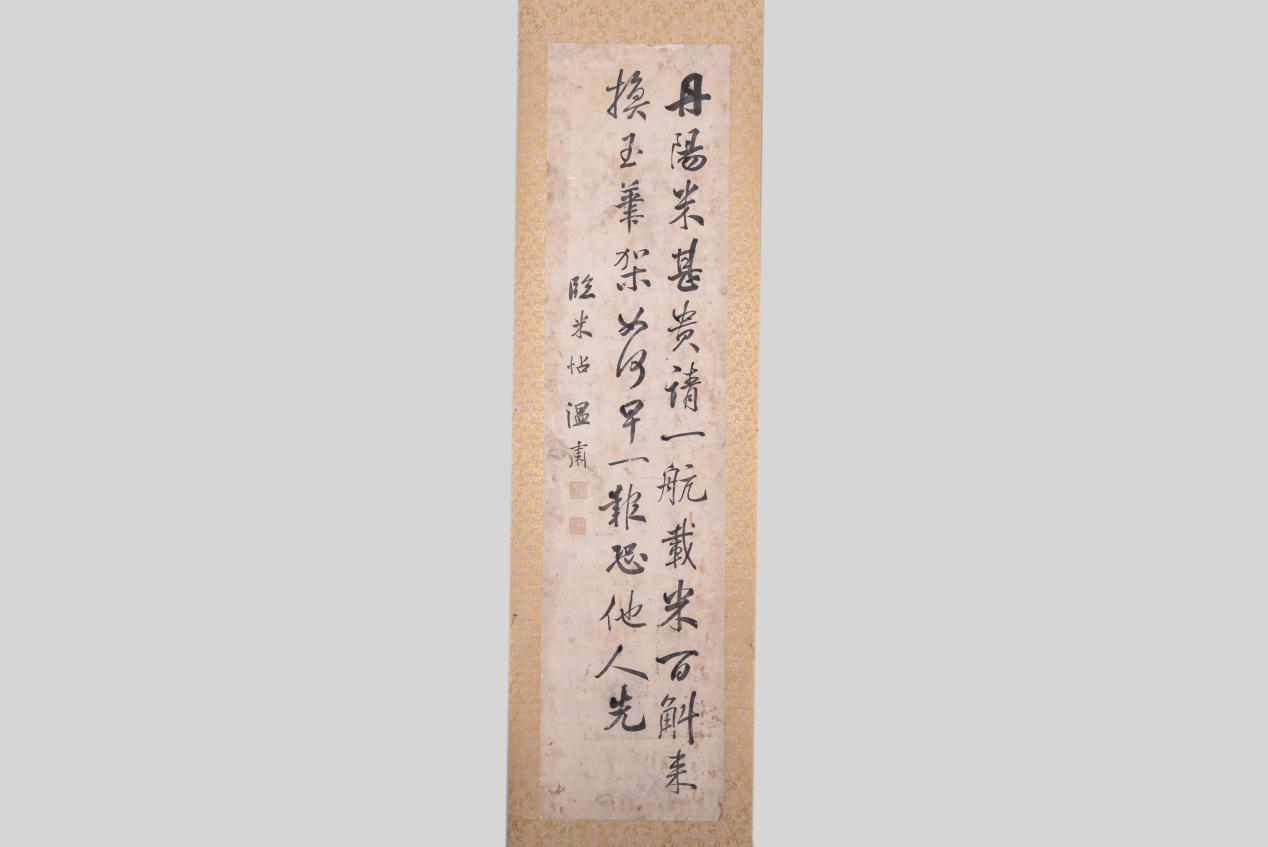 丹陽米甚貴請一航載米百斛来
換玉筆架如何早一報恐他人先
臨米帖 温肅